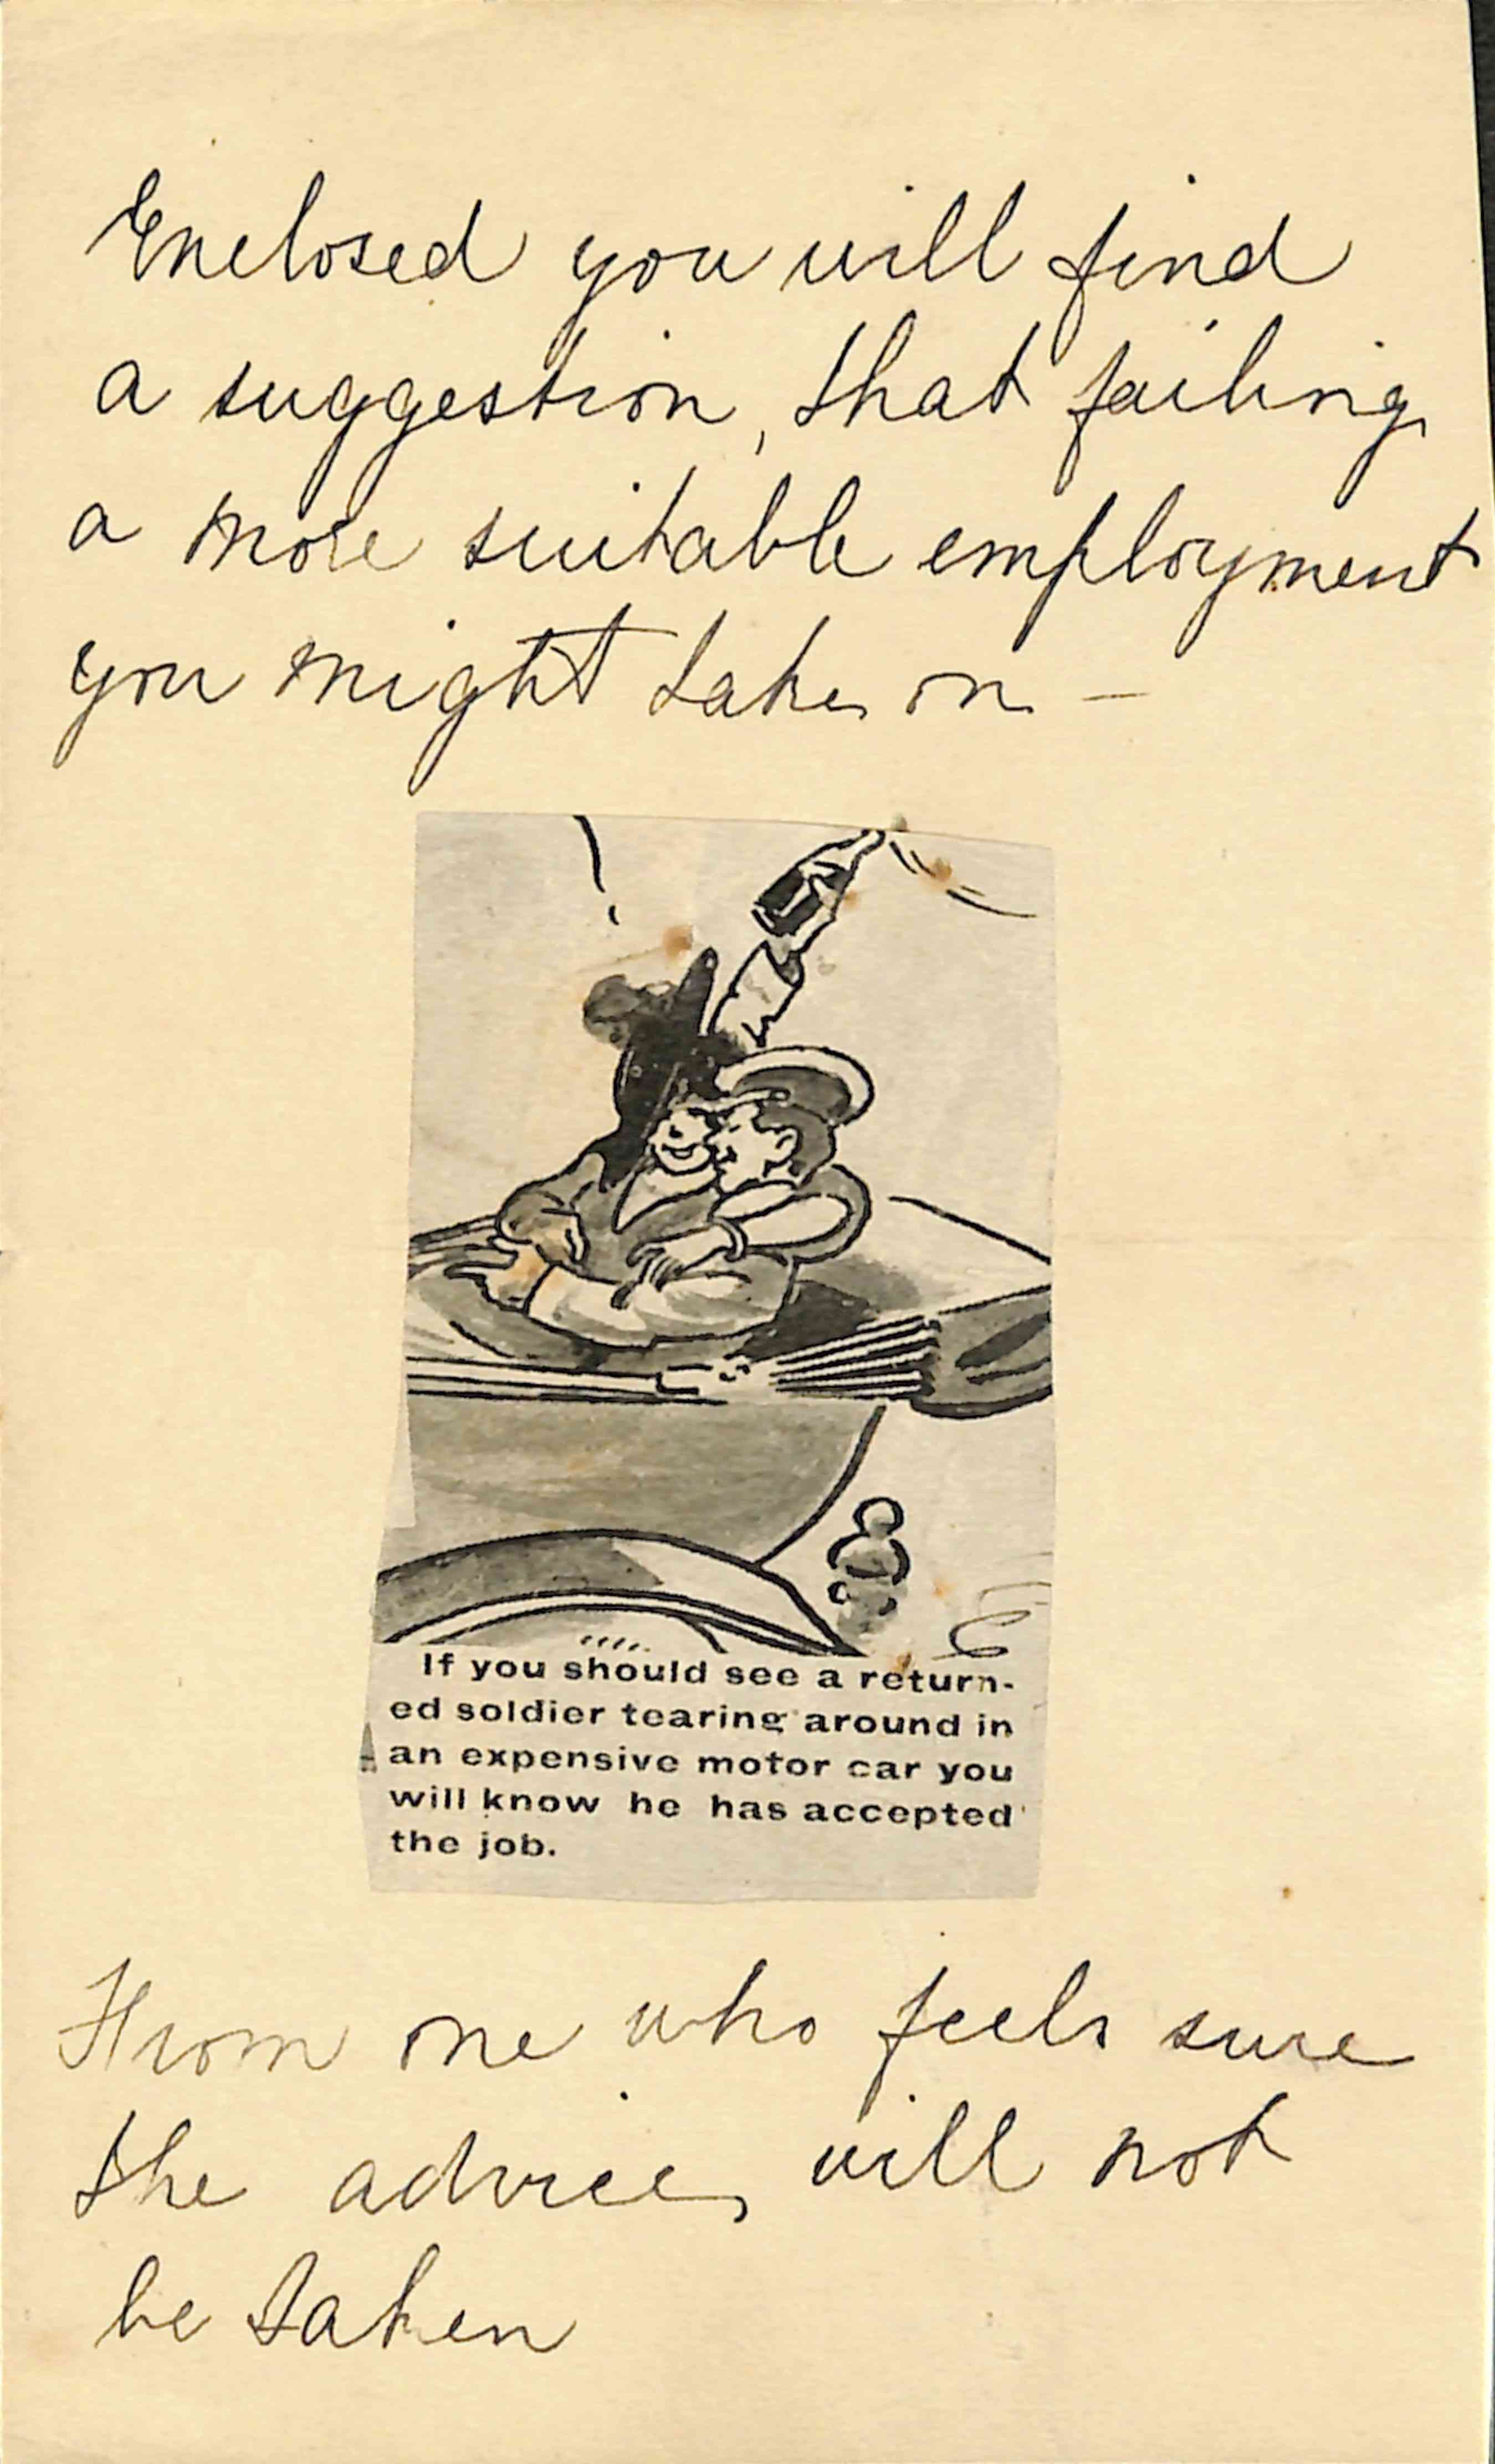 Enclosed you will find
a suggestion, that failing
a more suitable employment
you might take on –
If you should see a return-
ed soldier tearing around in
an expensive motor car you
will know he has accepted
the job.
From one who feels sure
the advice, will not
be taken